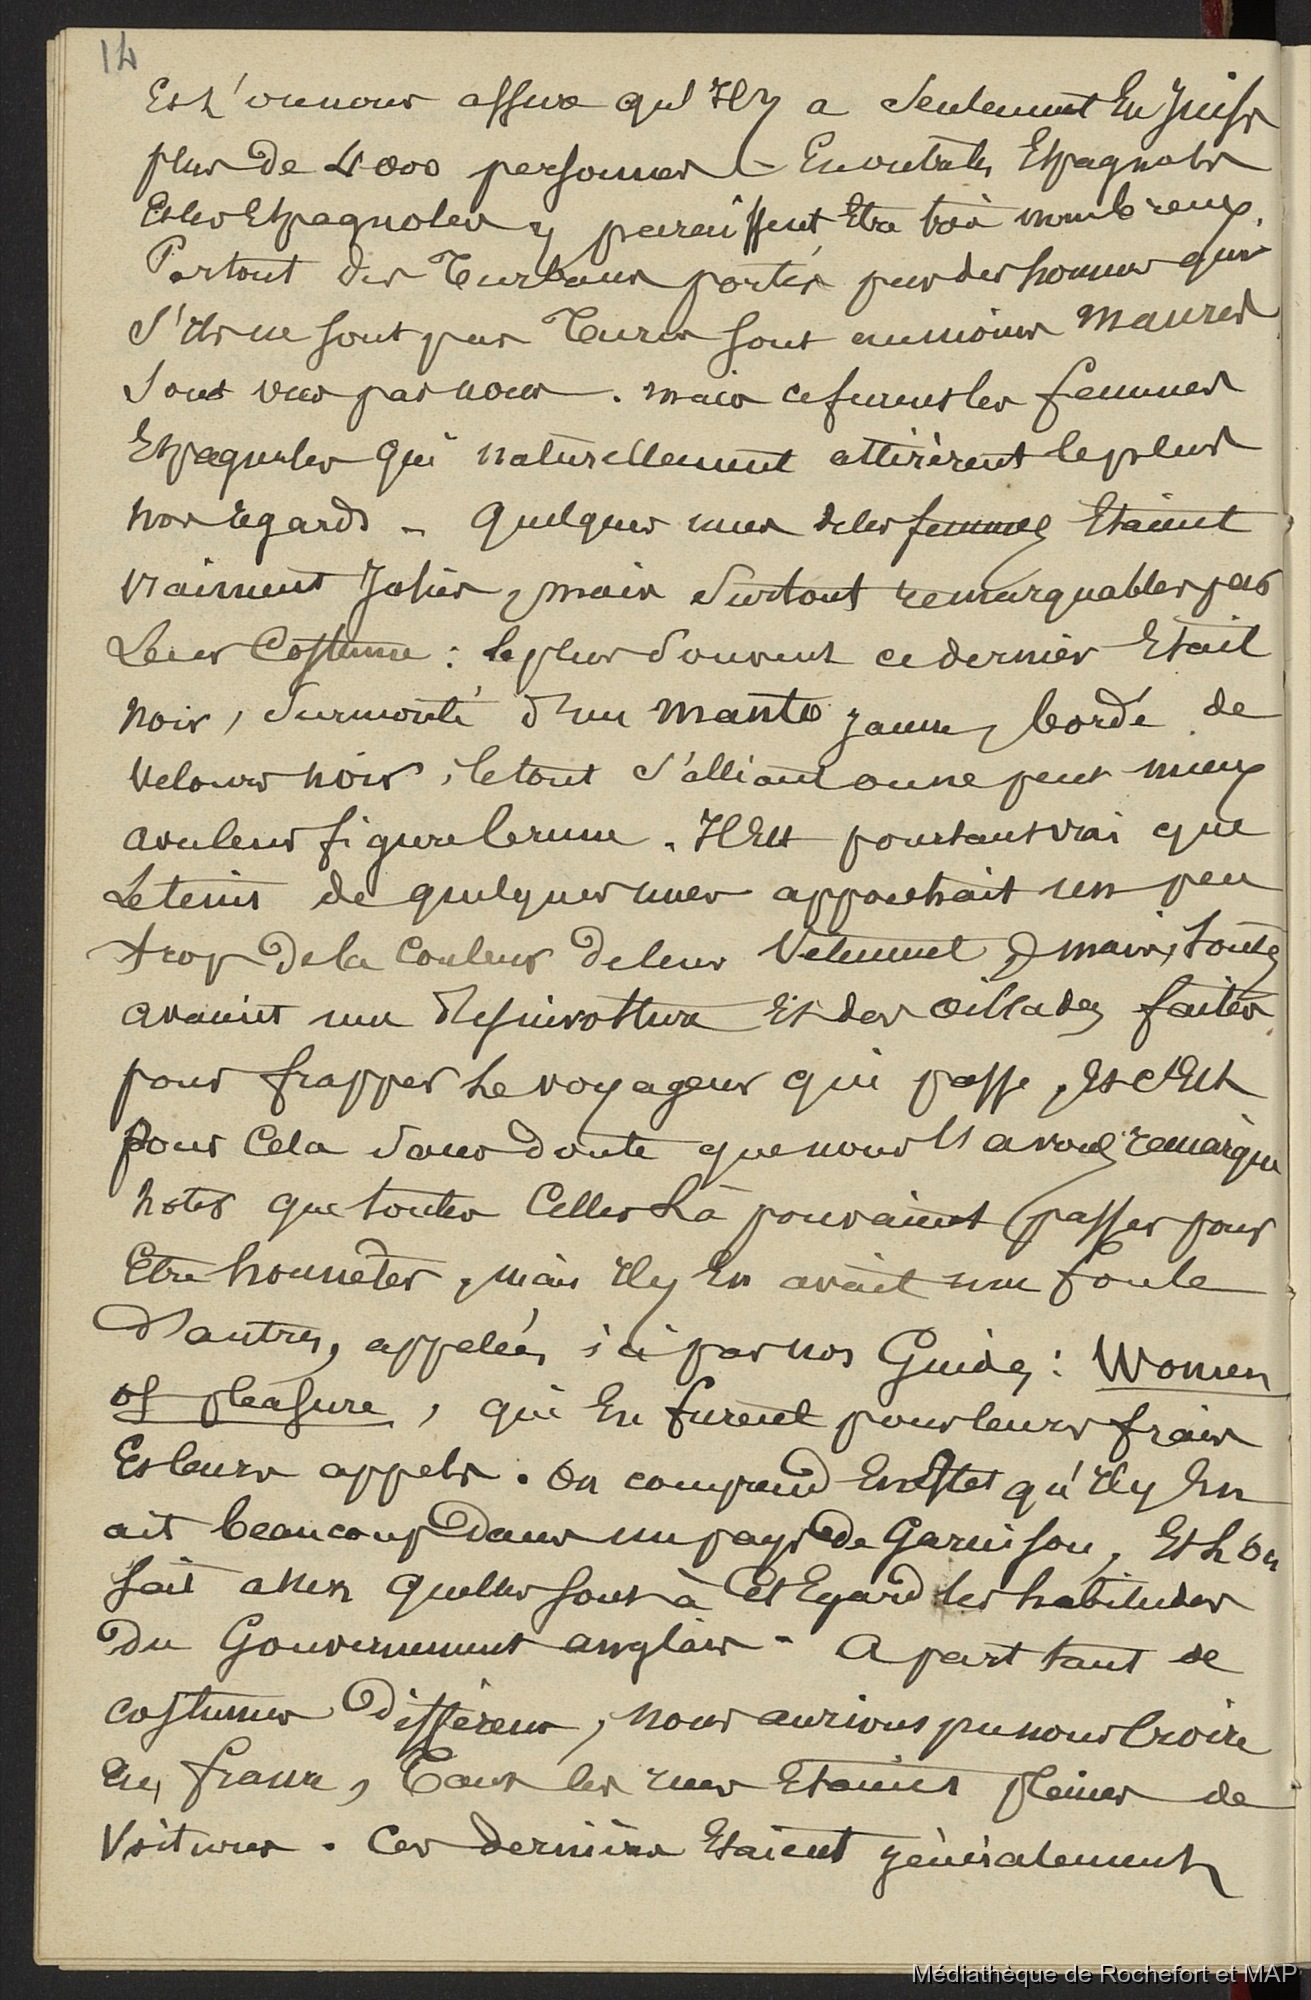 14
Et l'on nous assure qu'Il y a seulement En Juifs
plus de 4000 personnes – En outre les Espagnols
Et les Espagnoles y paraissent Etre très nombreux.
Partout des Turbans portés par des hommes qui
s'Ils ne sont pas Turcs sont au moins Maures
sont vus par nous. mais ce furent les femmes
Espagnoles qui naturellement attirèrent le plus
nos regards – Quelques unes de les femmes Etaient
vraiment Jolies, mais surtout remarquables par
Leur Costume : le plus souvent ce dernier Etait
noir, surmonté d'un manto jaune, bordé de
velours noir, le tout s'alliant on ne peut mieux
avec leur figure brune. Il Est pourtant vrai que
Le teint de quelques unes approchait un peu
trop de la Couleur de leur Vetement, mais, toutes
avaient une desinvolture Et des œillades faites
pour frapper Le voyageur qui passe, Et c'Est
pour Cela sans doute que nous les avons remarqué
notez que toutes Celles Là pouvaient passer pour
Etre honnetes, mais Il y En avait une foule
d'autres, appelées ici par nos Guides : Women
of pleasure, qui En furent pour leurs frais
Et leurs appels. On comprend En Effet qu'Il y En
ait beaucoup Dans un pays De Garnison, Et L'on
sait assez quelles sont à Cet Egard les habitudes
Du Gouvernement anglais – A part tant de
costumes Différens, nous aurions pu nous Croire
En france, Tant les rues Etaient pleines de
Voitures. Ces dernières Etaient généralement
Médiathèque de Rochefort et MAP